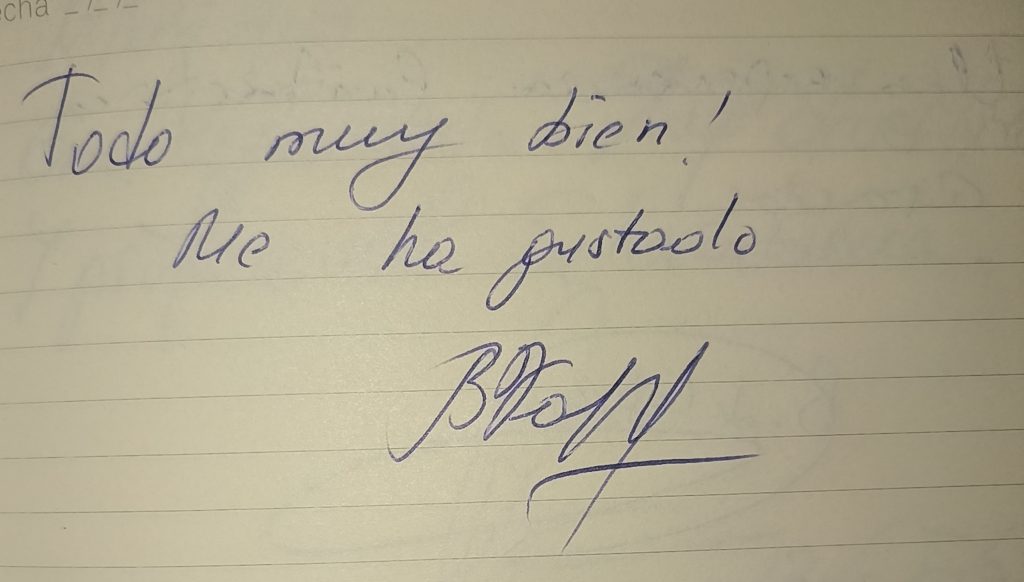 echa _/_/_
Todo muy bien!
Me ha gustado